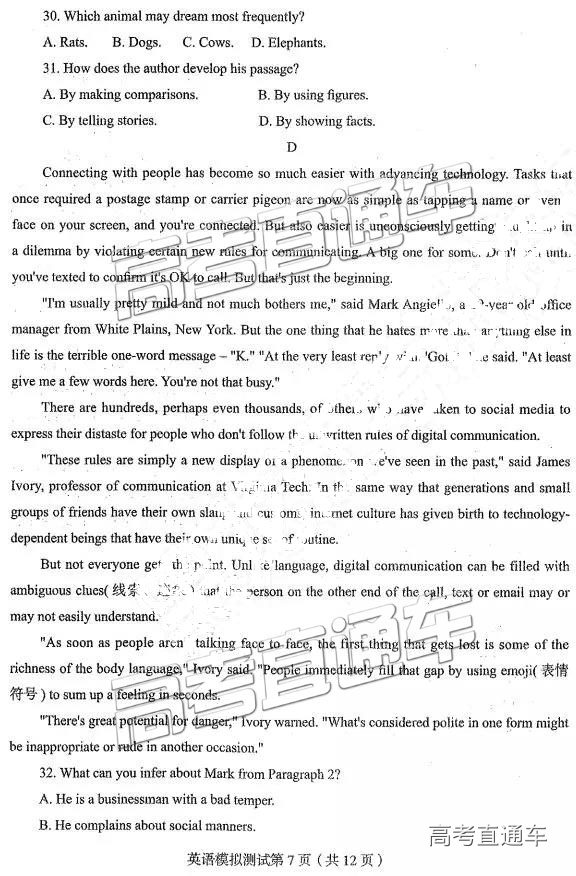 30. Which animal may dream most frequently?
A. Rats. B. Dogs. C. Cows. D. Elephants.
31. How does the author develop his passage?
A. By making comparisons. B. By using figures.
C. By telling stories. D. By showing facts.
D
Connecting with people has become so much easier with advancing technology. Tasks that
once required a postage stamp or carrier pigeon are now as simple as tapping a name or
face on your screen, and you're connected. But also easier is unconsciously getting in
a dilemma by violating certain new rules for communicating. A big one for some. Don't until
you've texted to confirm it's OK to call. But that's just the beginning.
"I'm usually pretty mild and not much bothers me," said Mark old office
manager from White Plains, New York. But the one thing that he hates more than anything else in
life is the terrible one-word message – "K." "At the very least reply said. "At least
give me a few words here. You're not that busy."
There are hundreds, perhaps even thousands, of others who have taken to social media to
express their distaste for people who don't follow the unwritten rules of digital communication.
"These rules are simply a new display of a phenomenon we've seen in the past," said James
Ivory, professor of communication at Virginia Tech. In the same way that generations and small
groups of friends have their own slang and customs, internet culture has given birth to technology-
dependent beings that have their own unique set of routine.
But not everyone gets the point. Unlike language, digital communication can be filled with
ambiguous clues(线索 that the person on the other end of the call, text or email may or
may not easily understand.
"As soon as people aren't talking face to face, the first thing that gets lost is some of the
richness of the body language," Ivory said. "People immediately fill that gap by using emoji(表情
符号) to sum up a feeling in seconds.
"There's great potential for danger," Ivory warned. "What's considered polite in one form might
be inappropriate or rude in another occasion."
32. What can you infer about Mark from Paragraph 2?
A. He is a businessman with a bad temper.
B. He complains about social manners.
英语模拟测试第 7 页（共 12 页）
高考直通车
高考直通车
高考直通车